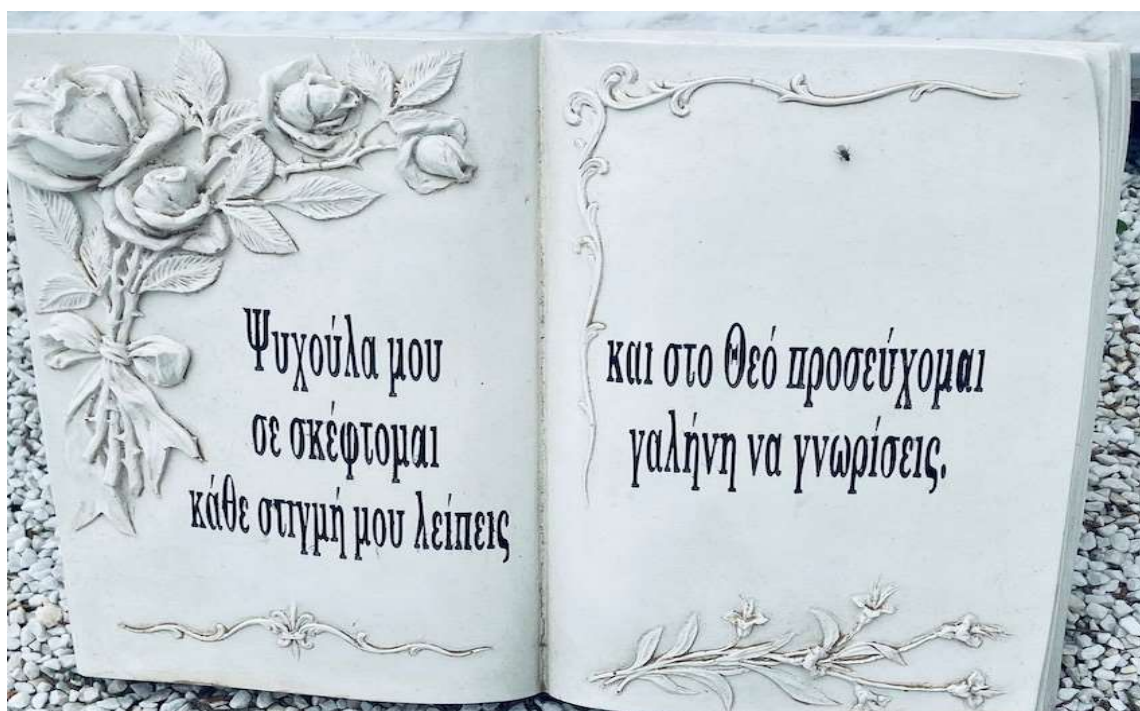 Ψυχούλα μου
σε σκέφτομαι
κάθε στιγμή μου λείπεις
και στο Θεό προσεύχομαι
γαλήνη να γνωρίσεις.